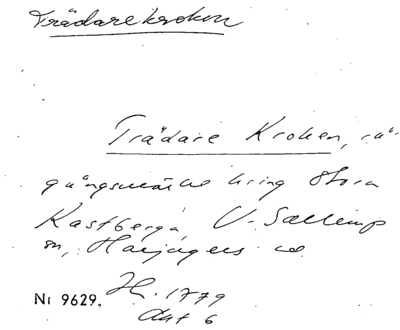 Trädarekroken
Trädare Kroken, rå-
gångsmärke kring Stora
Kastberga, V. Sallerup
sn, Harjagers hd
Nr 9629. H. 1779
Akt 6